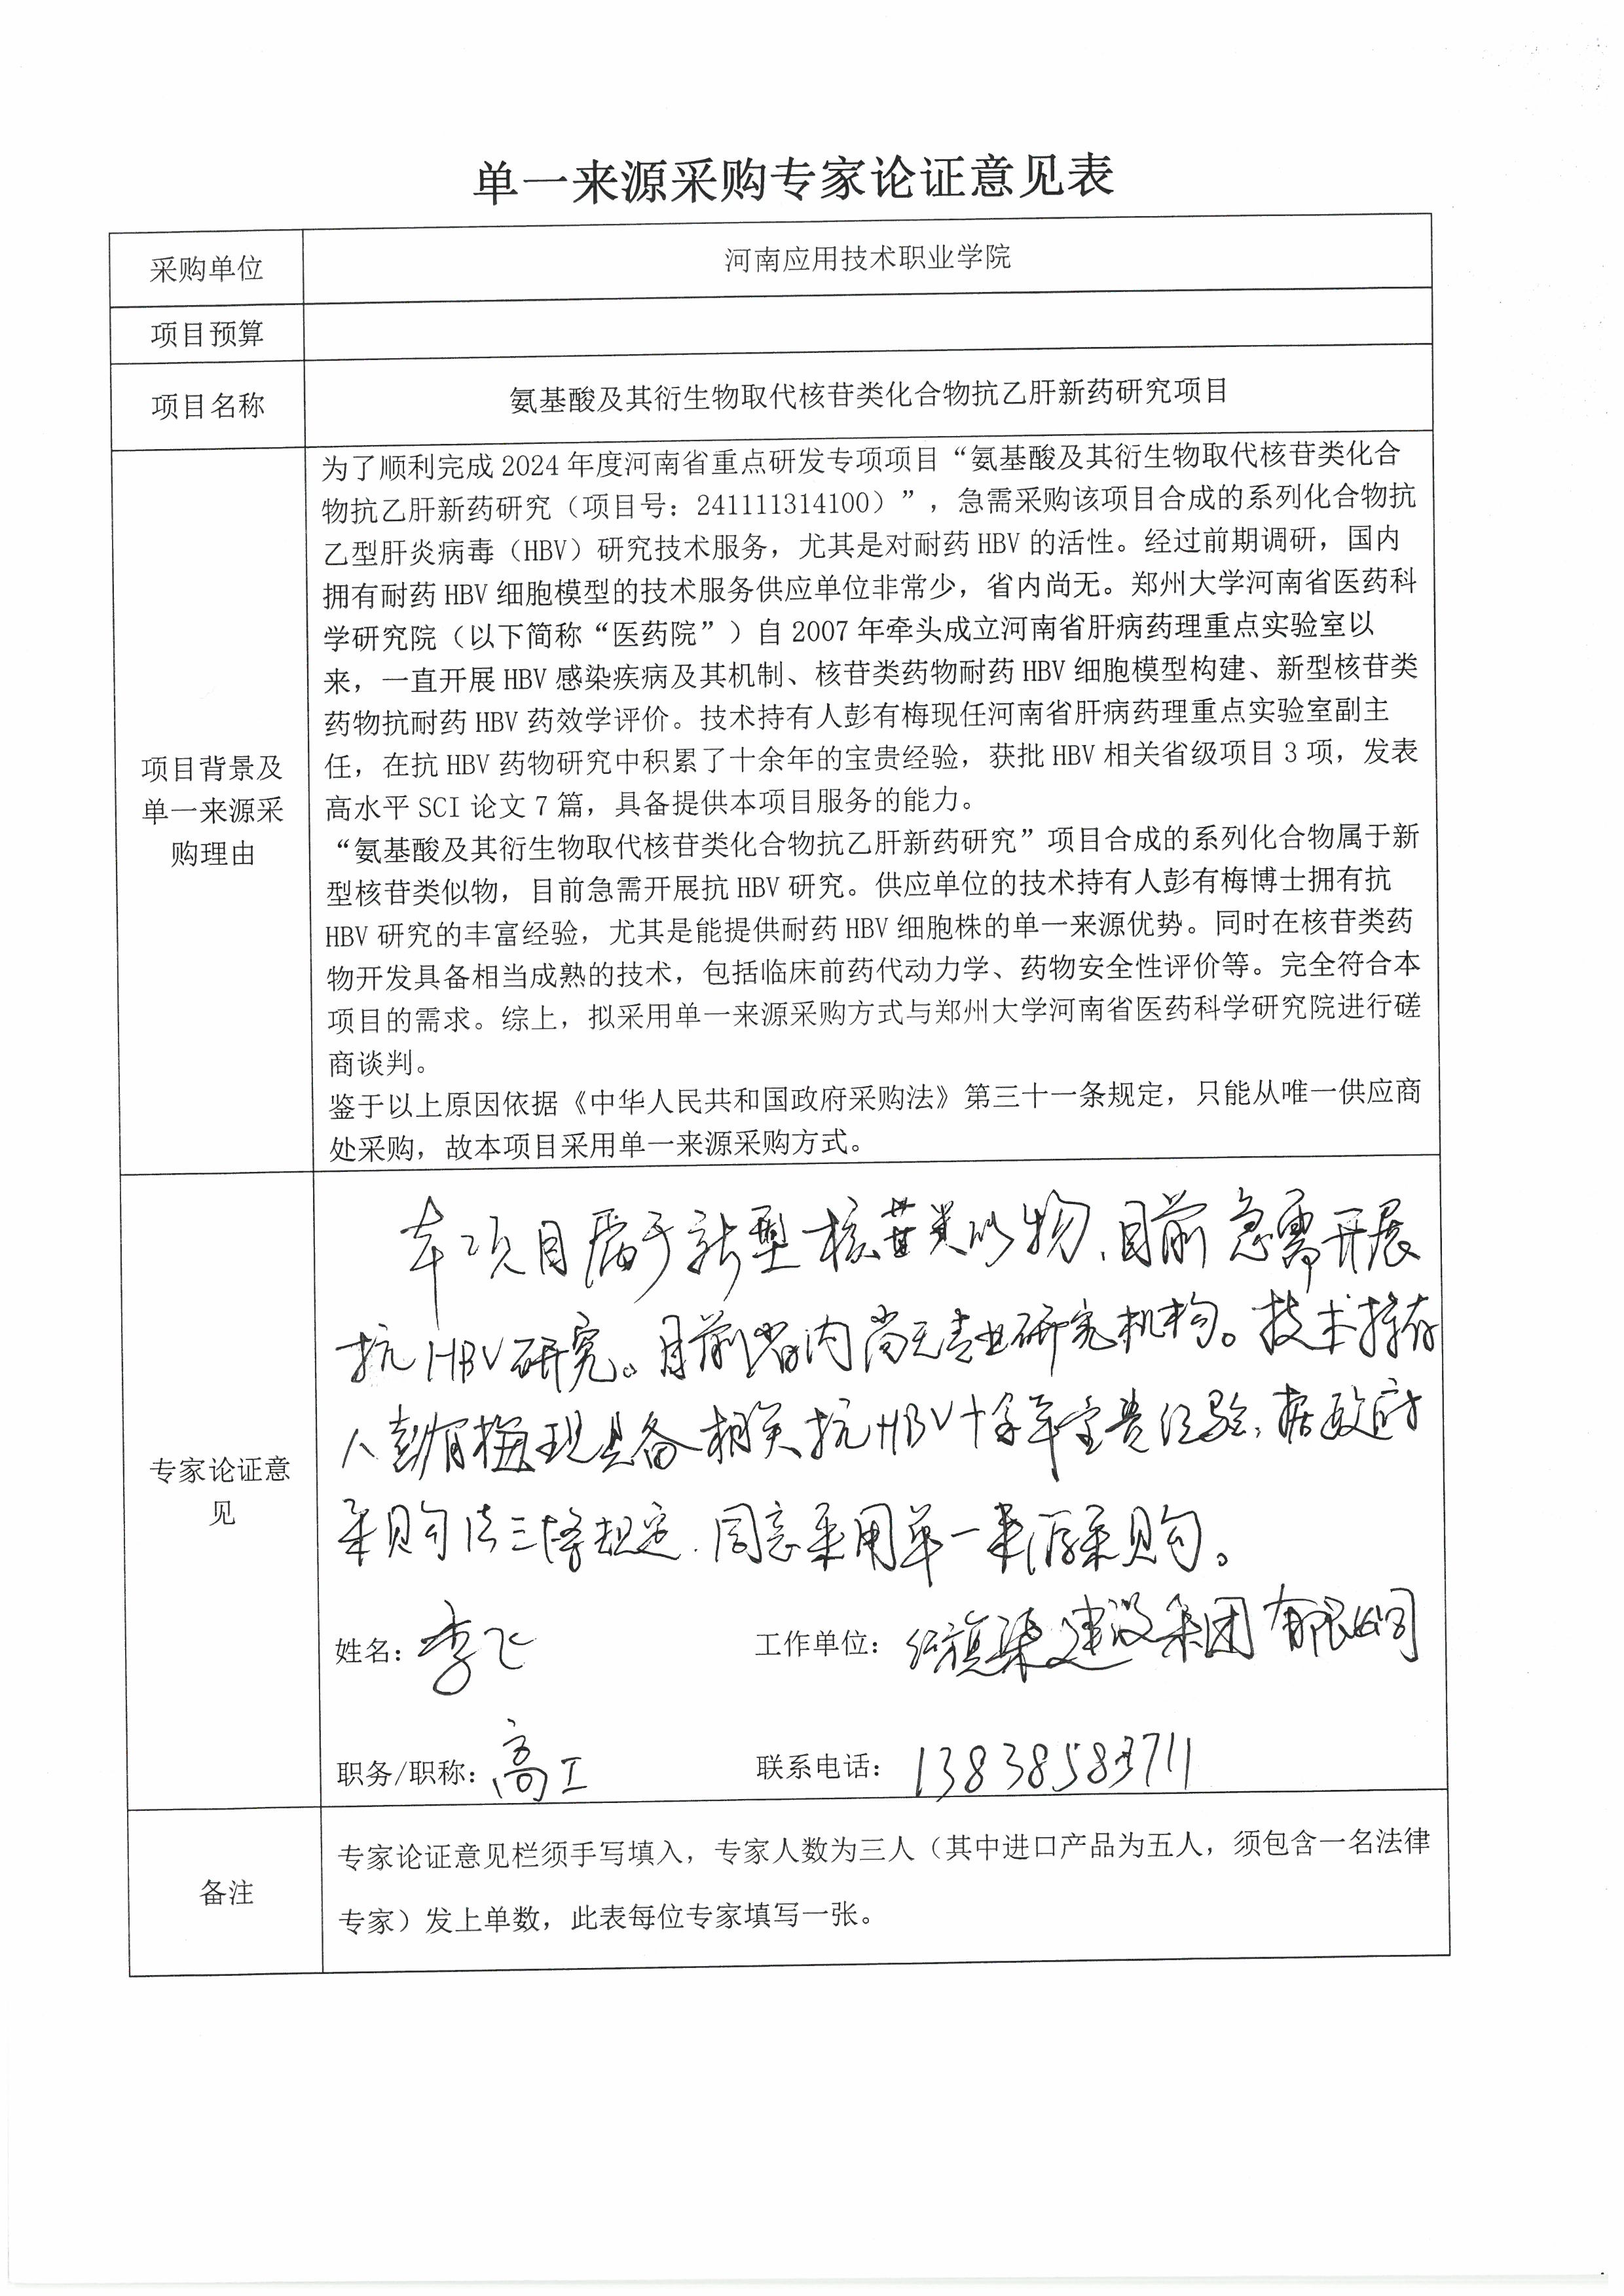 单一来源采购专家论证意见表
采购单位
河南应用技术职业学院
项目预算
项目名称
氨基酸及其衍生物取代核苷类化合物抗乙肝新药研究项目
项目背景及
单一来源采
购理由
为了顺利完成 2024 年度河南省重点研发专项项目“氨基酸及其衍生物取代核苷类化合
物抗乙肝新药研究（项目号：241111314100）”，急需采购该项目合成的系列化合物抗
乙型肝炎病毒（HBV）研究技术服务，尤其是对耐药 HBV 的活性。经过前期调研，国内
拥有耐药 HBV 细胞模型的技术服务供应单位非常少，省内尚无。郑州大学河南省医药科
学研究院（以下简称“医药院”）自 2007 年牵头成立河南省肝病药理重点实验室以
来，一直开展 HBV 感染疾病及其机制、核苷类药物耐药 HBV 细胞模型构建、新型核苷类
药物抗耐药 HBV 药效学评价。技术持有人彭有梅现任河南省肝病药理重点实验室副主
任，在抗 HBV 药物研究中积累了十余年的宝贵经验，获批 HBV 相关省级项目 3 项，发表
高水平 SCI 论文 7 篇，具备提供本项目服务的能力。
“氨基酸及其衍生物取代核苷类化合物抗乙肝新药研究”项目合成的系列化合物属于新
型核苷类似物，目前急需开展抗 HBV 研究。供应单位的技术持有人彭有梅博士拥有抗
HBV 研究的丰富经验，尤其是能提供耐药 HBV 细胞株的单一来源优势。同时在核苷类药
物开发具备相当成熟的技术，包括临床前药代动力学、药物安全性评价等。完全符合本
项目的需求。综上，拟采用单一来源采购方式与郑州大学河南省医药科学研究院进行磋
商谈判。
鉴于以上原因依据《中华人民共和国政府采购法》第三十一条规定，只能从唯一供应商
处采购，故本项目采用单一来源采购方式。
专家论证意
见
本项目属于新型核苷类似物、目前急需开展
抗HBV研究。目前省内尚无专业研究机构。技术持有
人彭有梅现具备相关抗HBV十余年宝贵经验，据政府
采购法三十条规定，同意采用单一来源采购。
姓名：李飞
工作单位：红旗渠建设集团有限公司
职务/职称：高工
联系电话：13838583711
备注
专家论证意见栏须手写填入，专家人数为三人（其中进口产品为五人，须包含一名法律
专家）发上单数，此表每位专家填写一张。